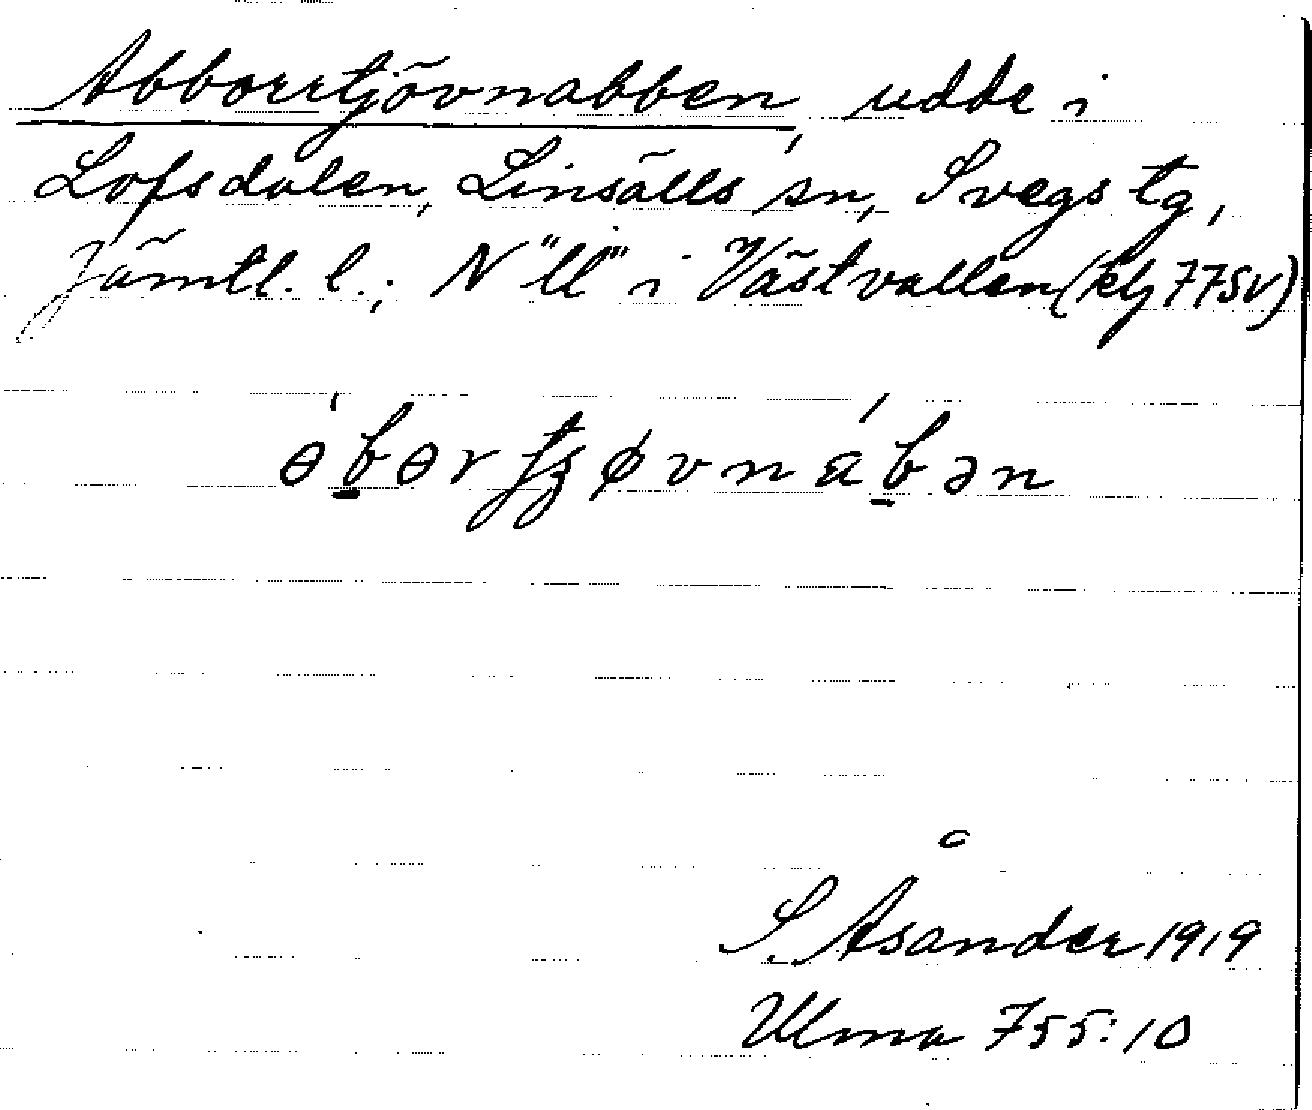 Abborrtjövnabben, udde i
Lofsdalen, Linsälls sn, Svegs tg,
Jämtl. l.; N "ll" i Västvallen (kbj 77SV)
ɵ́ḇɵrtʒøvnáḇən
S. Åsander 1919
Ulma 755:10